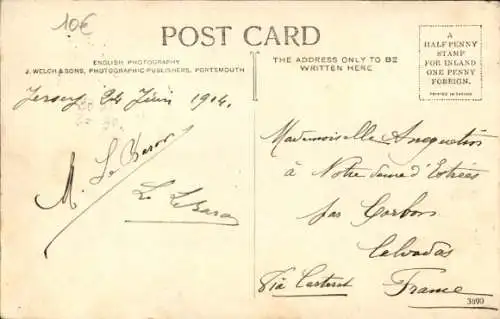 10€
POST CARD
ENGLISH PHOTOGRAPHY
J. WELCH & SONS, PHOTOGRAPHIC PUBLISHERS, PORTSMOUTH
THE ADDRESS ONLY TO BE
WRITTEN HERE
A
HALFPENNY
STAMP
FOR INLAND
ONE PENNY
FOREIGN.
Jersey 24 Juin 1914.
M. Le
Le
Mademoiselle
à Notre dame d'Estrées
par Corbon
Calvados
Via Carteret France
3890